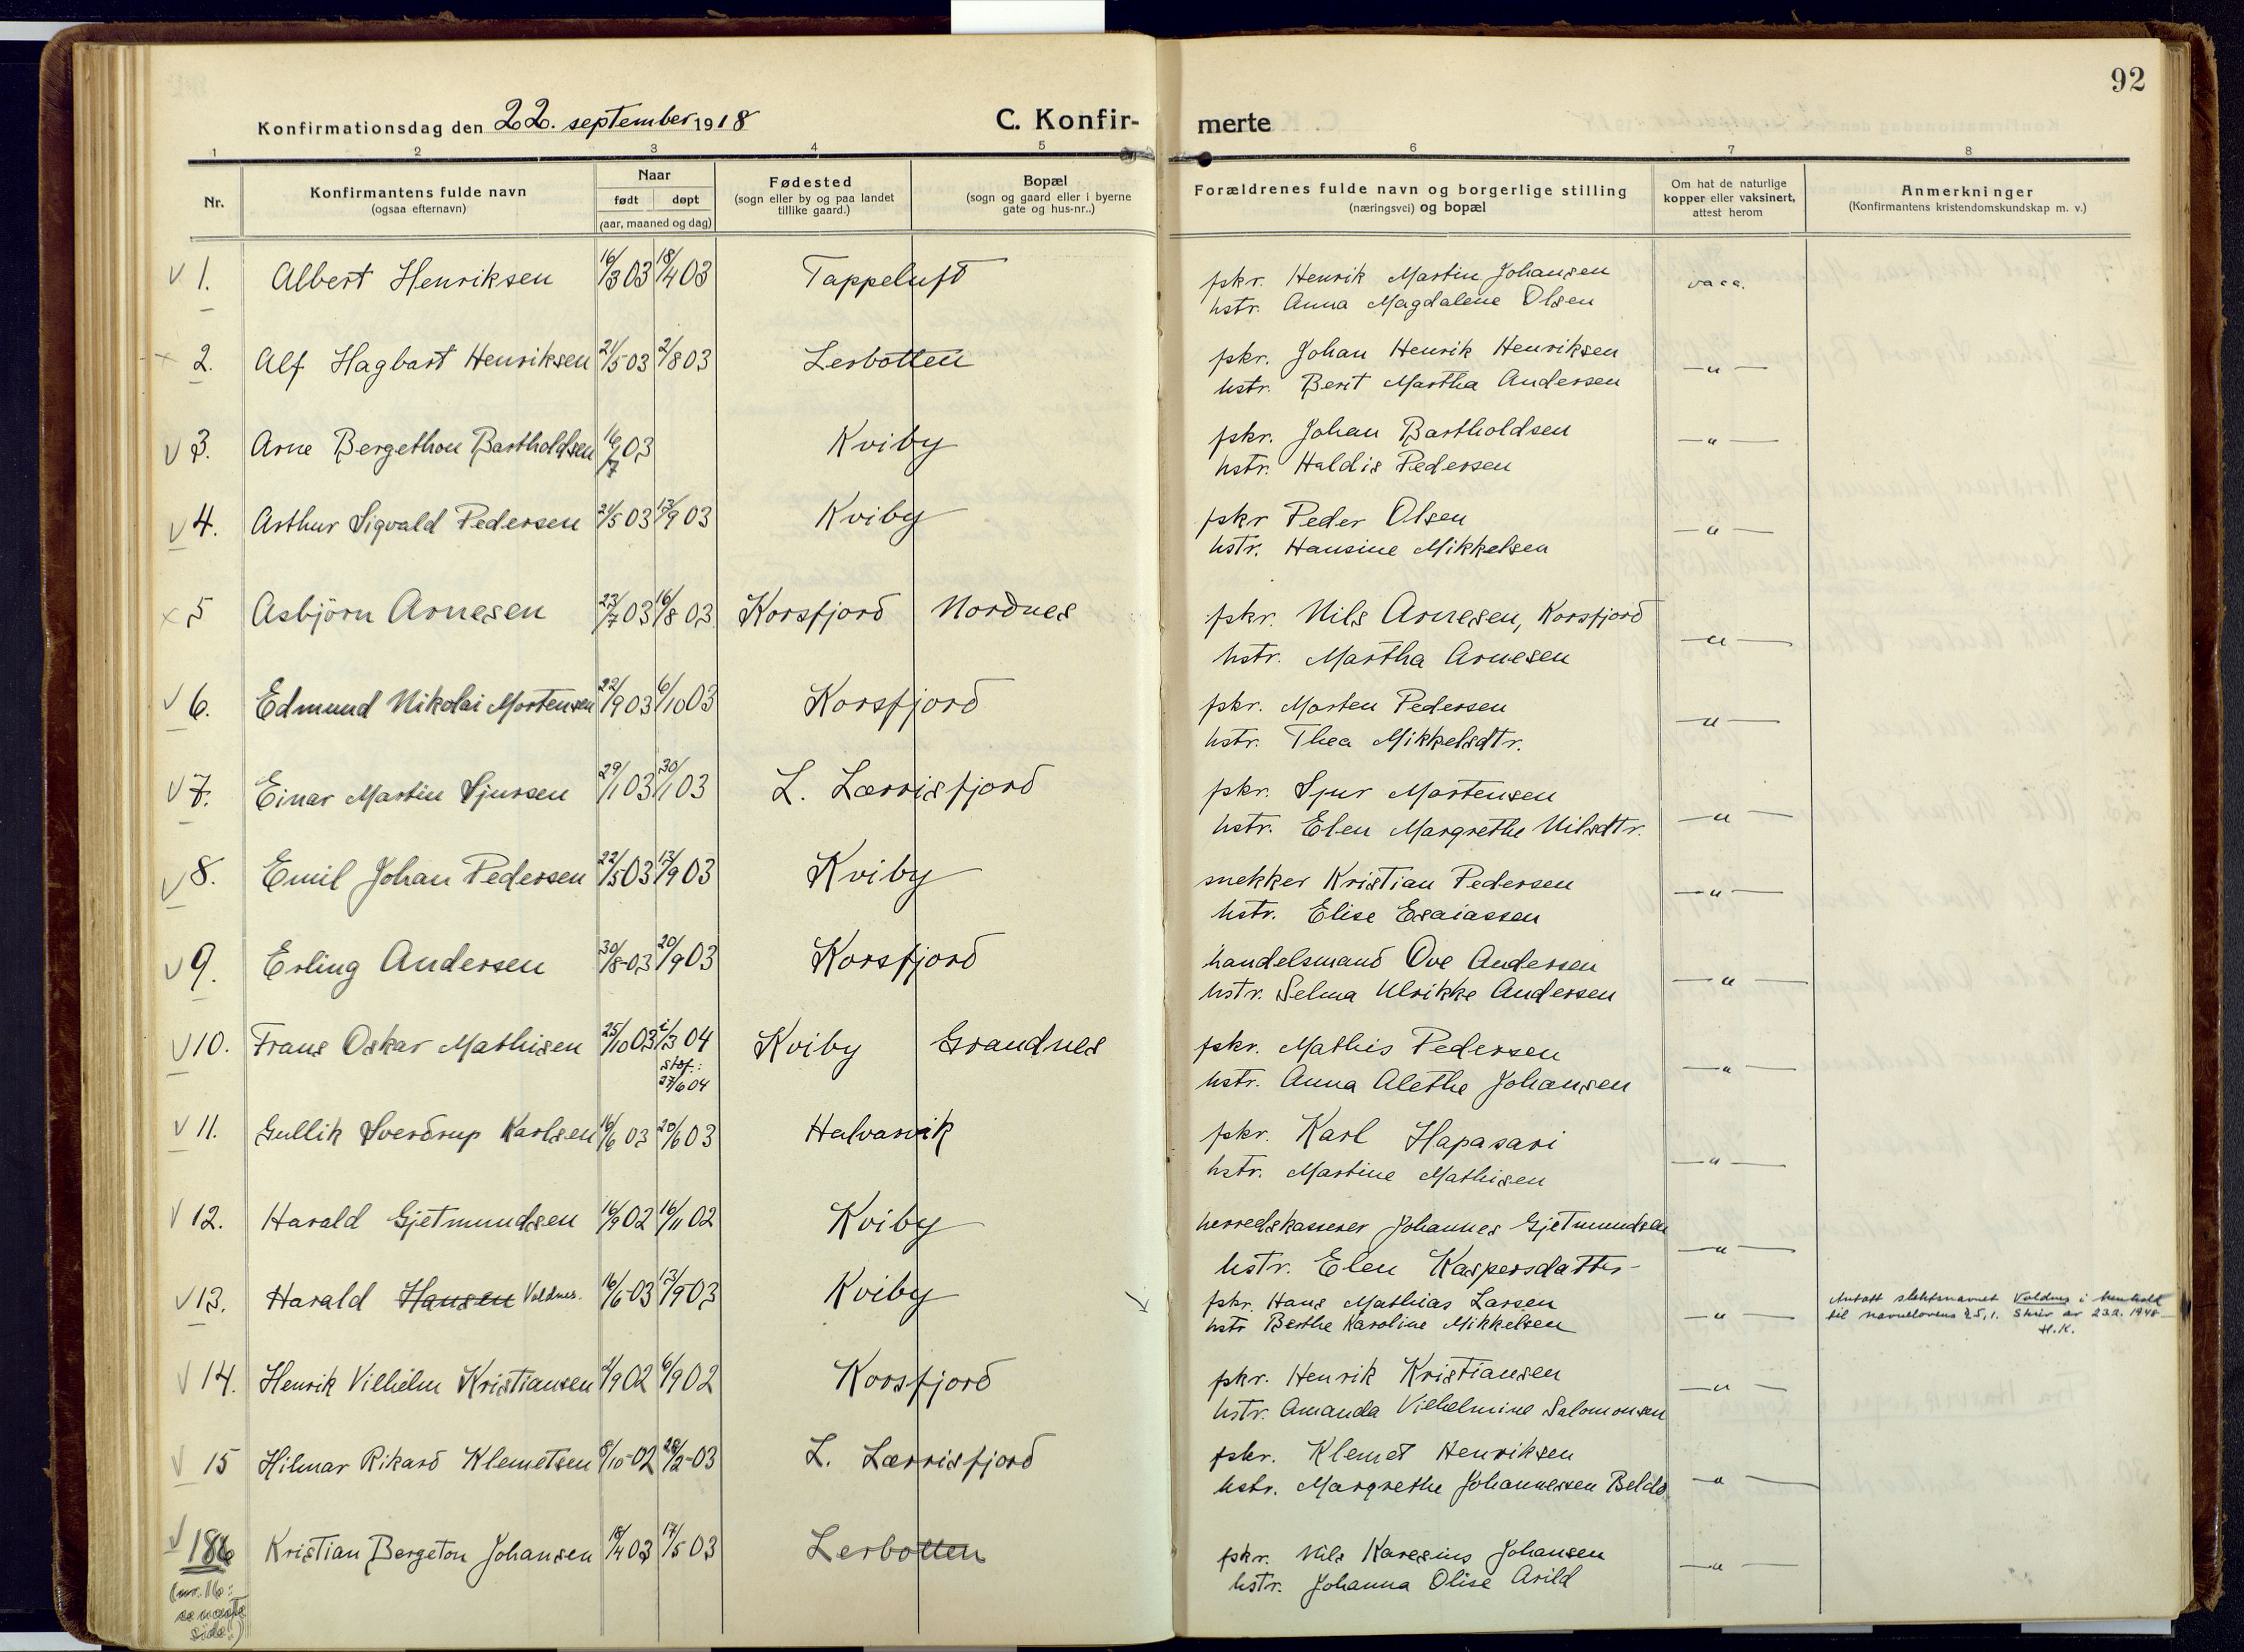 92
Konfirmationsdag den 22. september 1918
C. Konfir- merte
1 2 3 4 5 6 7 8
Nr.
Konfirmantens fulde navn
(ogsaa efternavn)
Naar
født døpt
(aar, maaned og dag)
Fødested
(sogn eller by og paa landet
tillike gaard.)
Bopæl
(sogn og gaard eller i byerne
gate og hus-nr..)
Forældrenes fulde navn og borgerlige stilling
(næringsvei) og bopæl
Om hat de naturlige
kopper eller vaksinert,
attest herom
Anmerkninger
(Konfirmantens kristendomskundskap m. v.)
1. Albert Henriksen 16/3 03 18/4 03 Tappeluft fskr. Henrik Martin Johansen vacc.
hstr. Anna Magdalene Olsen
2. Alf Hagbart Henriksen 21/5 03 2/8 03 Lerbotten fskr. Johan Henrik Henriksen —"—
hstr. Berit Martha Andersen
3. Arne Bergethon Bartholdsen 16/7 03 Kviby fskr. Johan Bartholdsen —"—
hstr. Haldis Pedersen
4. Arthur Sigvald Pedersen 21/5 03 13/9 03 Kviby fskr Peder Olsen —"—
hstr. Hansine Mikkelsen
5 Asbjörn Arnesen 23/7 03 16/8 03 Korsfjord Nordnes fskr. Nils Arnesen, Korsfjord —"—
hstr. Martha Arnesen
6. Edmund Nikolai Mortensen 22/9 03 6/10 03 Korsfjord fskr. Morten Pedersen —"—
hstr. Thea Mikkelsdtr.
7. Einar Martin Sjursen 29/1 03 30/1 03 L. Lærrisfjord fskr. Sjur Mortensen —"—
hstr. Elen Margrethe Nilsdtr.
8. Emil Johan Pedersen 22/5 03 13/9 03 Kviby snekker Kristian Pedersen —"—
hstr. Elise Esaiassen
9. Erling Andersen 30/8-03 20/9 03 Korsfjord handelsmand Ove Andersen —"—
hstr. Selma Ulrikke Andersen
10. Frans Oskar Mathisen 25/10 03 i/3 04 Kviby Grandnes fskr. Mathis Pedersen —"—
stdf.:
27/6 04
hstr. Anna Alethe Johansen
11. Gullik Sverdrup Karlsen 16/6 03 20/6 03 Halvarvik fskr. Karl Hapasari —"—
hstr. Martine Mathisen
12. Harald Gjetmundsen 16/9 02 16/11 02 Kviby herredskasserer Johannes Gjetmundsen —"—
hstr. Elen Kaspersdatter
13. Harald Hansen Voldnes. 16/6-03 13/9-03 Kviby fskr. Hans Mathias Larsen —"— Antatt slektsnavnet Voldnes i henhold
hstr Berthe Karoline Mikkelsen til navnelovens § 5, 1. Skriv av 23.2. 1948
H.K.
14. Henrik Vilhelm Kristiansen 2/9 02 6/9 02 Korsfjord fskr. Henrik Kristiansen —"—
hstr. Amanda Vilhelmine Salomonsen
15 Hilmar Rikard Klemetsen 8/10-02 28/2-03 L. Lærrisfjord fskr. Klemet Henriksen —"—
hstr. Margrethe Johannessen Beldo
Kristian Bergeton Johansen 18/4 03 17/5 03 Lerbotten fskr. Nils Karesius Johansen —"—
hstr. Johanna Olise Arild
(nr. 16:
se næste
side.)